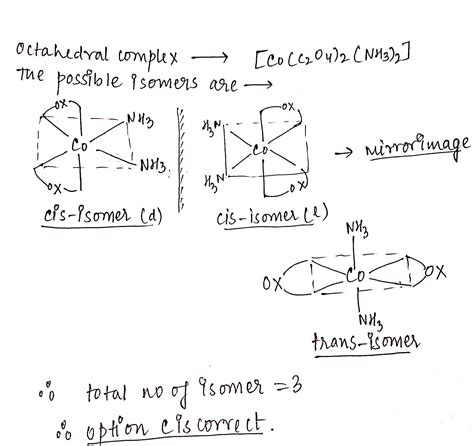 Octahedral complex ⟶ [Co(C2O4)2(NH3)2]
The possible isomers are ⟶
OX NH3
Co
NH3
OX
cis-isomer (d)
H3N OX
Co
H3N
OX
cis-isomer (l)
→ mirror image
NH3
OX Co OX
NH3
trans-isomer
∴ total no of isomer = 3
∴ option C is correct.